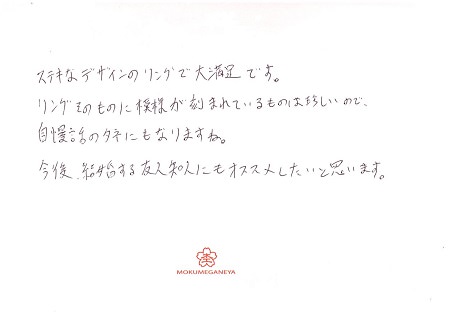 ステキなデザインのリングで大満足です。
リングそのものに模様が刻まれているものは珍しいので、
自慢話のタネにもなりますね。
今後、結婚する友人知人にもオススメしたいと思います。
MOKUMEGANEYA